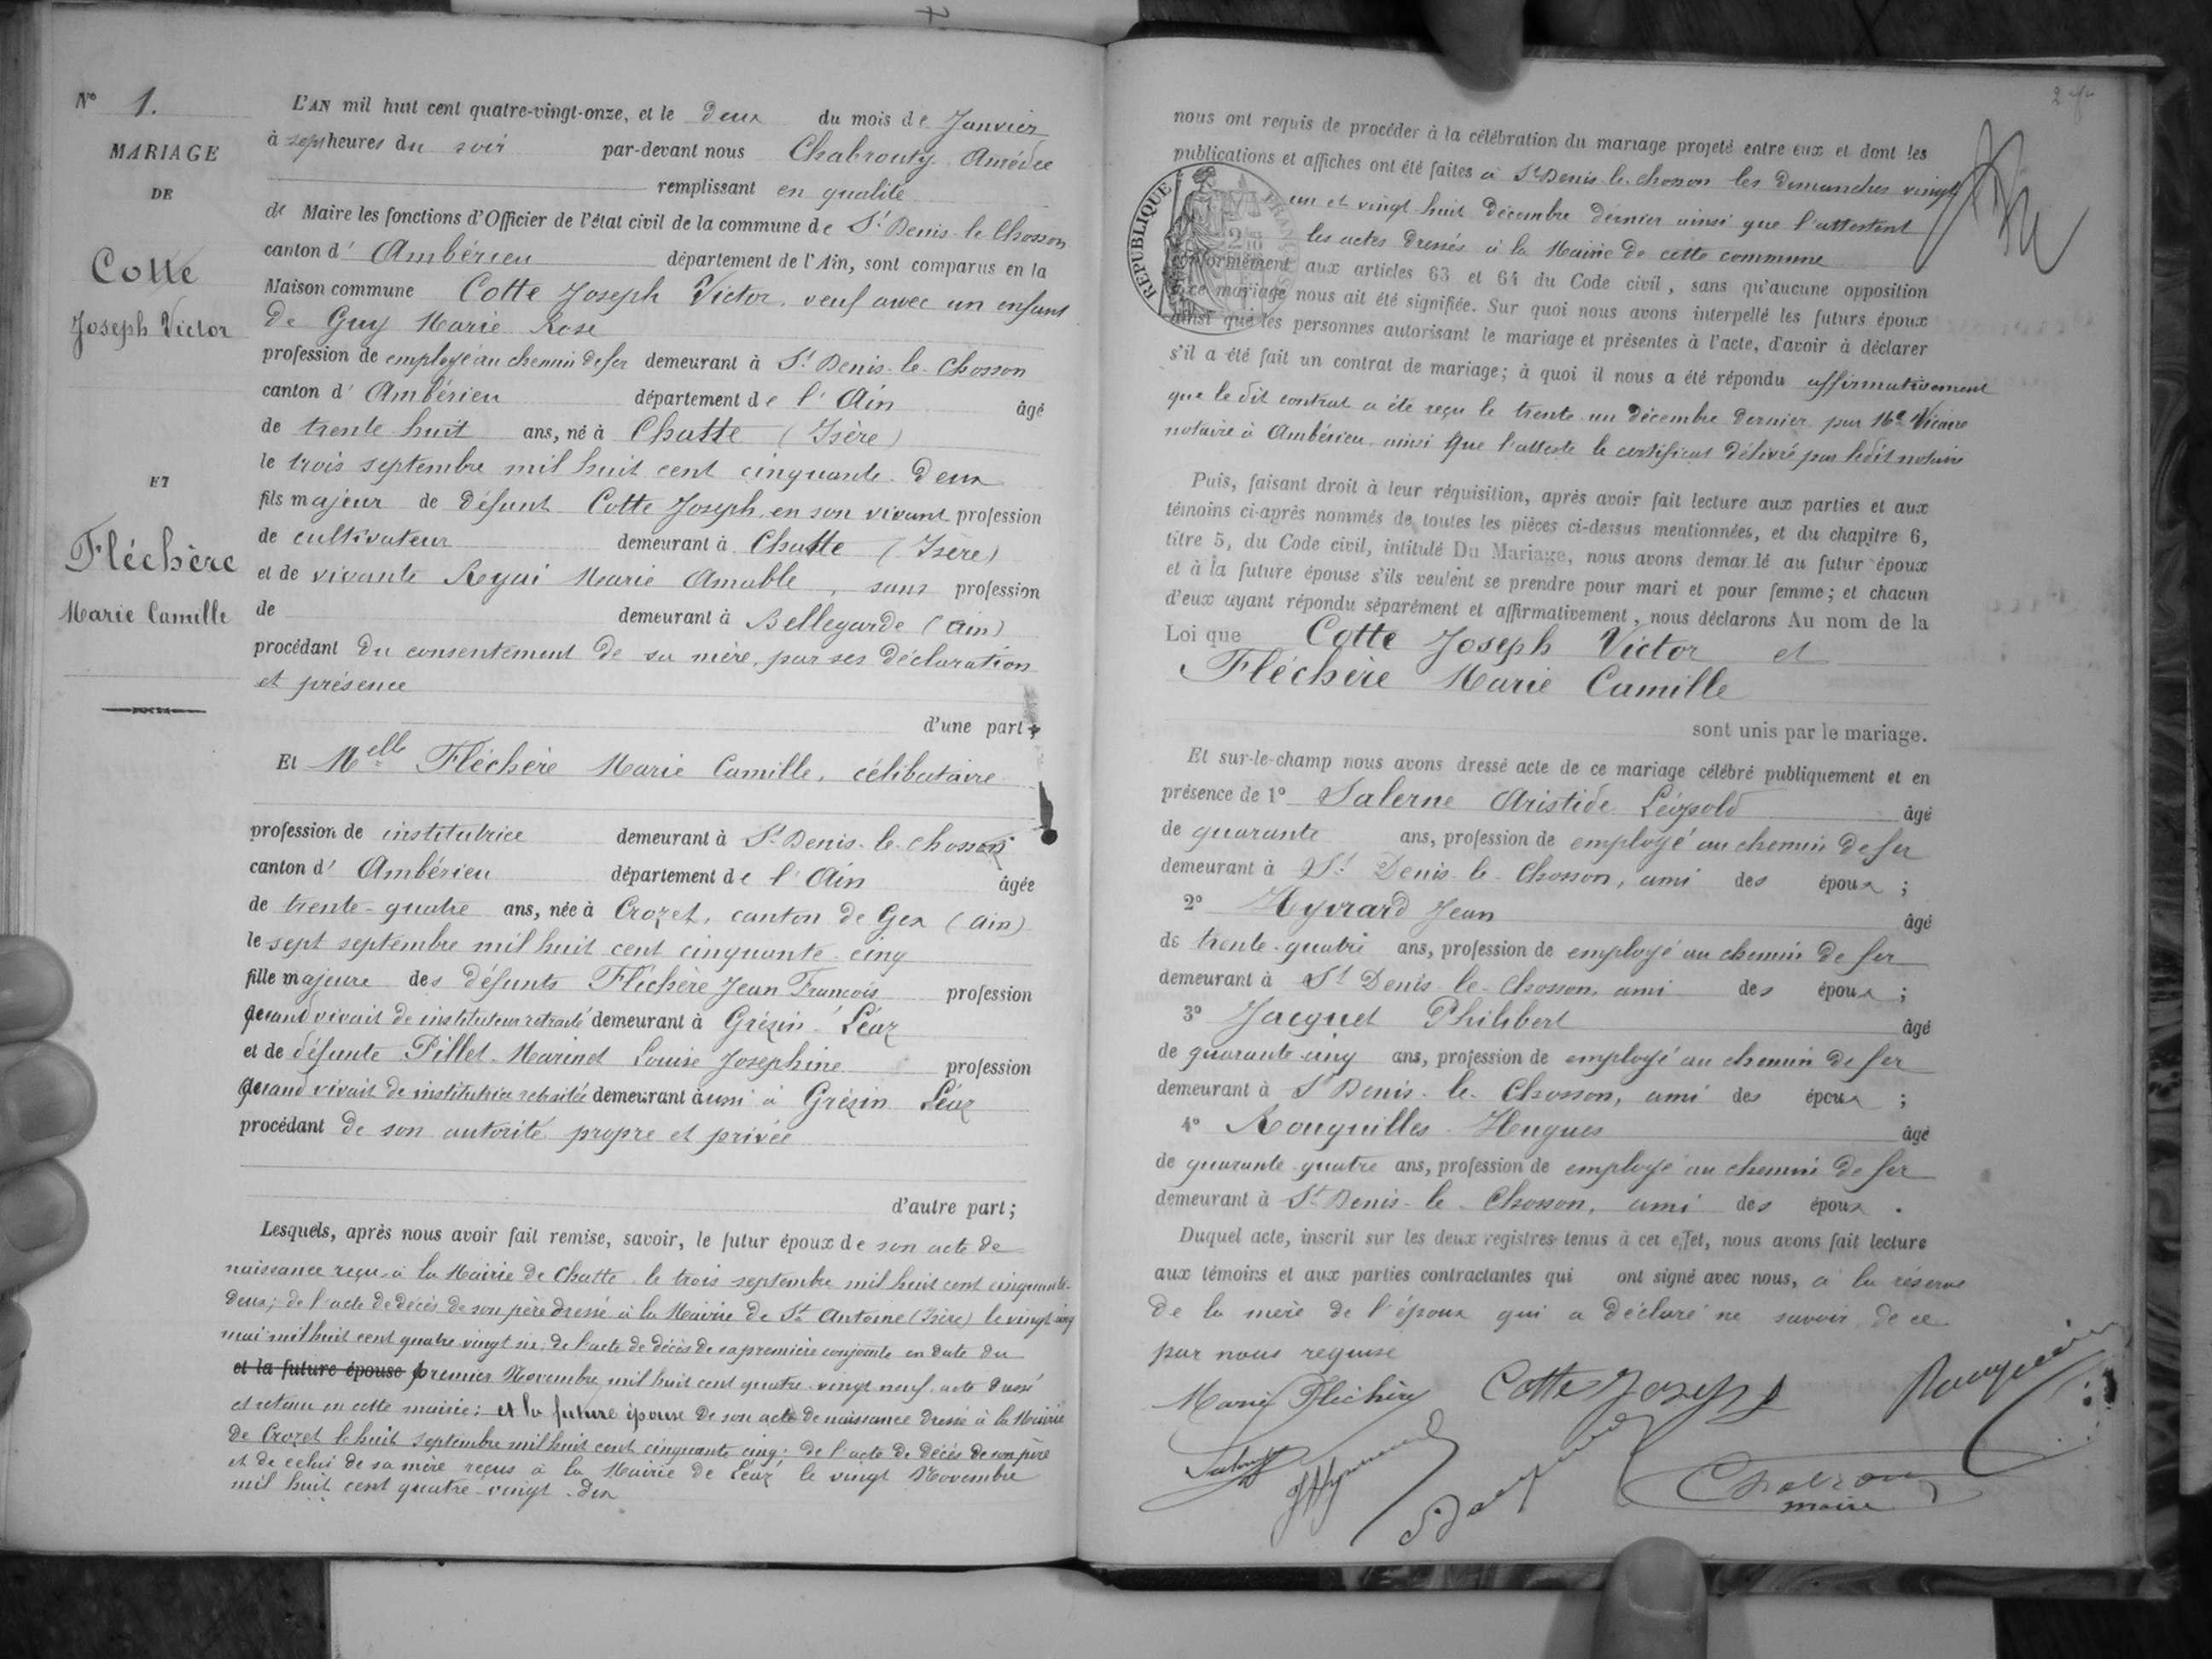 N° 1.
MARIAGE
DE
Cotte
Joseph Victor
ET
Fléchère
Marie Camille
L'AN mil huit cent quatre-vingt-onze, et le deux du mois de Janvier
à sept heures du soir par-devant nous Chabrouty Amédée
remplissant en qualité
de Maire les fonctions d'Officier de l'état civil de la commune de St Denis-le-Chosson
canton d'Ambérieu département de l'Ain, sont comparus en la
Maison commune Cotte Joseph Victor, veuf avec un enfant
de Guy Marie Rose
profession de employé au chemin de fer demeurant à St Denis-le-Chosson
canton d'Ambérieu département de l'Ain âgé
de trente huit ans, né à Chatte (Isère)
le trois septembre mil huit cent cinquante-deux
fils majeur de défunt Cotte Joseph, en son vivant profession
de cultivateur demeurant à Chatte (Isère)
et de vivante Marie Amable, sans profession
de demeurant à Bellegarde (Ain)
procédant du consentement de sa mère, par ses déclaration
et présence
d'une part;
Et Melle Fléchère Marie Camille, célibataire
profession de institutrice demeurant à St Denis-le-Chosson
canton d'Ambérieu département de l'Ain âgée
de trente-quatre ans, née à Crozet, canton de Gex (Ain)
le sept septembre mil huit cent cinquante-cinq
fille majeure des défunts Fléchère Jean François profession
quand vivait de instituteur retraité demeurant à Grésin-Léaz
et de défunte Pillet-Marinet Louise Josephine profession
quand vivait de institutrice retraitée demeurant aussi à Grésin Léaz
procédant de son autorité propre et privée
d'autre part;
Lesquels, après nous avoir fait remise, savoir, le futur époux de son acte de
naissance reçu à la Mairie de Chatte le trois septembre mil huit cent cinquante-
deux; de l'acte de décès de son père dressé à la Mairie de St Antoine (Isère) le vingt-cinq
mai mil huit cent quatre-vingt-six, de l'acte de décès de sa première conjointe en date du
et la future épouse premier Novembre mil huit cent quatre-vingt-neuf, acte dressé
et retenu en cette mairie; et la future épouse de son acte de naissance dressé à la Mairie
de Crozet le huit septembre mil huit cent cinquante cinq; de l'acte de décès de son père
et de celui de sa mère reçus à la Mairie de Léaz le vingt Novembre
mil huit cent quatre-vingt-dix
2
nous ont requis de procéder à la célébration du mariage projeté entre eux et dont les
publications et affiches ont été faites à St Denis-le-Chosson les dimanches vingt
un et vingt-huit décembre dernier ainsi que l'attestent
les actes dressés à la Mairie de cette commune
RÉPUBLIQUE FRANÇAISE
conformément aux articles 63 et 64 du Code civil, sans qu'aucune opposition
à ce mariage nous ait été signifiée. Sur quoi nous avons interpellé les futurs époux
ainsi que les personnes autorisant le mariage et présentes à l'acte, d'avoir à déclarer
s'il a été fait un contrat de mariage; à quoi il nous a été répondu affirmativement
que le dit contrat a été reçu le trente-un décembre dernier par Me Vicaire
notaire à Ambérieu, ainsi que l'atteste le certificat délivré par ledit notaire
Puis, faisant droit à leur réquisition, après avoir fait lecture aux parties et aux
témoins ci-après nommés de toutes les pièces ci-dessus mentionnées, et du chapitre 6,
titre 5, du Code civil, intitulé Du Mariage, nous avons demandé au futur époux
et à la future épouse s'ils veulent se prendre pour mari et pour femme; et chacun
d'eux ayant répondu séparément et affirmativement, nous déclarons Au nom de la
Loi que Cotte Joseph Victor et
Fléchère Marie Camille
sont unis par le mariage.
Et sur-le-champ nous avons dressé acte de ce mariage célébré publiquement et en
présence de 1° Salerne Aristide Léopold âgé
de quarante ans, profession de employé au chemin de fer
demeurant à St Denis-le-Chosson, ami des époux;
2° Hyvrard Jean âgé
de trente-quatre ans, profession de employé au chemin de fer
demeurant à St Denis-le-Chosson, ami des époux;
3° Jacquet Philibert âgé
de quarante-cinq ans, profession de employé au chemin de fer
demeurant à St Denis-le-Chosson, ami des époux;
4° Rouguilles Hugues âgé
de quarante-quatre ans, profession de employé au chemin de fer
demeurant à St Denis-le-Chosson, ami des époux.
Duquel acte, inscrit sur les deux registres tenus à cet effet, nous avons fait lecture
aux témoins et aux parties contractantes qui ont signé avec nous, à la réserve
de la mère de l'époux qui a déclaré ne savoir, de ce
par nous requise
Marie Fléchère Cotte Joseph
maire